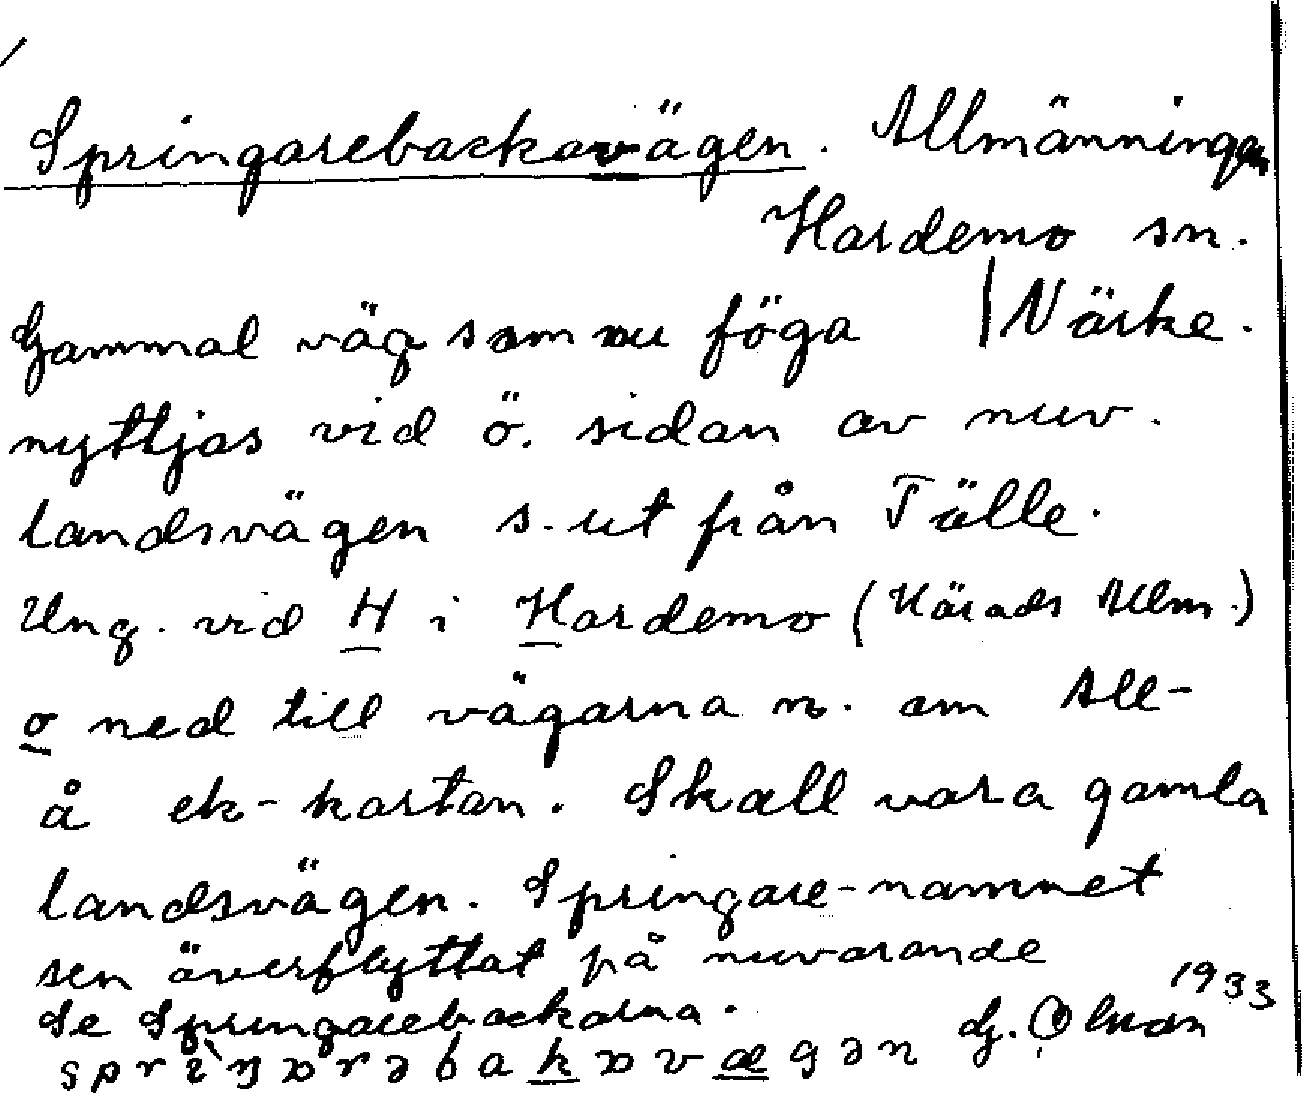 Springarebackavägen. Allmänningen
Hardemo sn.
Gammal väg som nu föga | Närke.
nyttjas vid ö. sidan av nuv.
landsvägen s. ut från Tälle.
Ung. vid H i Hardemo (Härads Allm.)
o ned till vägarna n. om All-
å ek-kartan. Skall vara gamla
landsvägen. Springare-namnet
sen överflyttat på nuvarande
Se Springarebackarna.
1933
G. Olson
sprìŋɒrəbakɒvægən